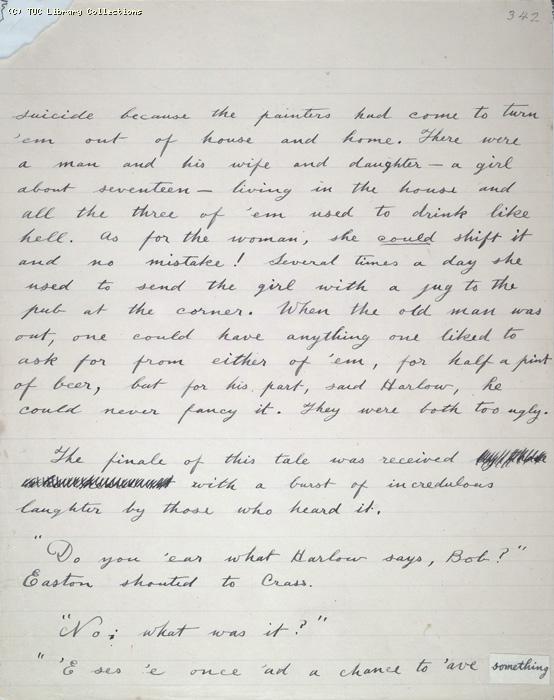 (C) TUC Library Collections
342
suicide because the painters had come to turn
'em out of house and home. There were
a man and his wife and daughter — a girl
about seventeen — living in the house and
all the three of 'em used to drink like
hell. As for the woman, she could shift it
and no mistake! Several times a day she
used to send the girl with a jug to the
pub at the corner. When the old man was
out, one could have anything one liked to
ask for from either of 'em, for half a pint
of beer, but for his part, said Harlow, he
could never fancy it. They were both too ugly.
The finale of this tale was received
with a burst of incredulous
laughter by those who heard it.
"Do you 'ear what Harlow says, Bob?"
Easton shouted to Crass.
"No; what was it?"
"'E ses 'e once 'ad a chance to 'ave something